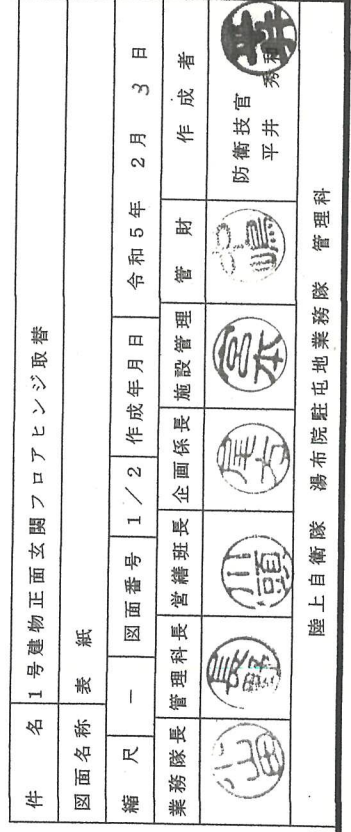 件名 1号建物正面玄関フロアヒンジ取替
図面名称 表紙
縮尺 － 図面番号 1／2 作成年月日 令和5年 2月 3日
業務隊長 管理科長 営繕班長 企画係長 施設管理 管財 作成者
川頭 尾方 宮本 防衛技官
平井 秀和
陸上自衛隊 湯布院駐屯地業務隊 管理科